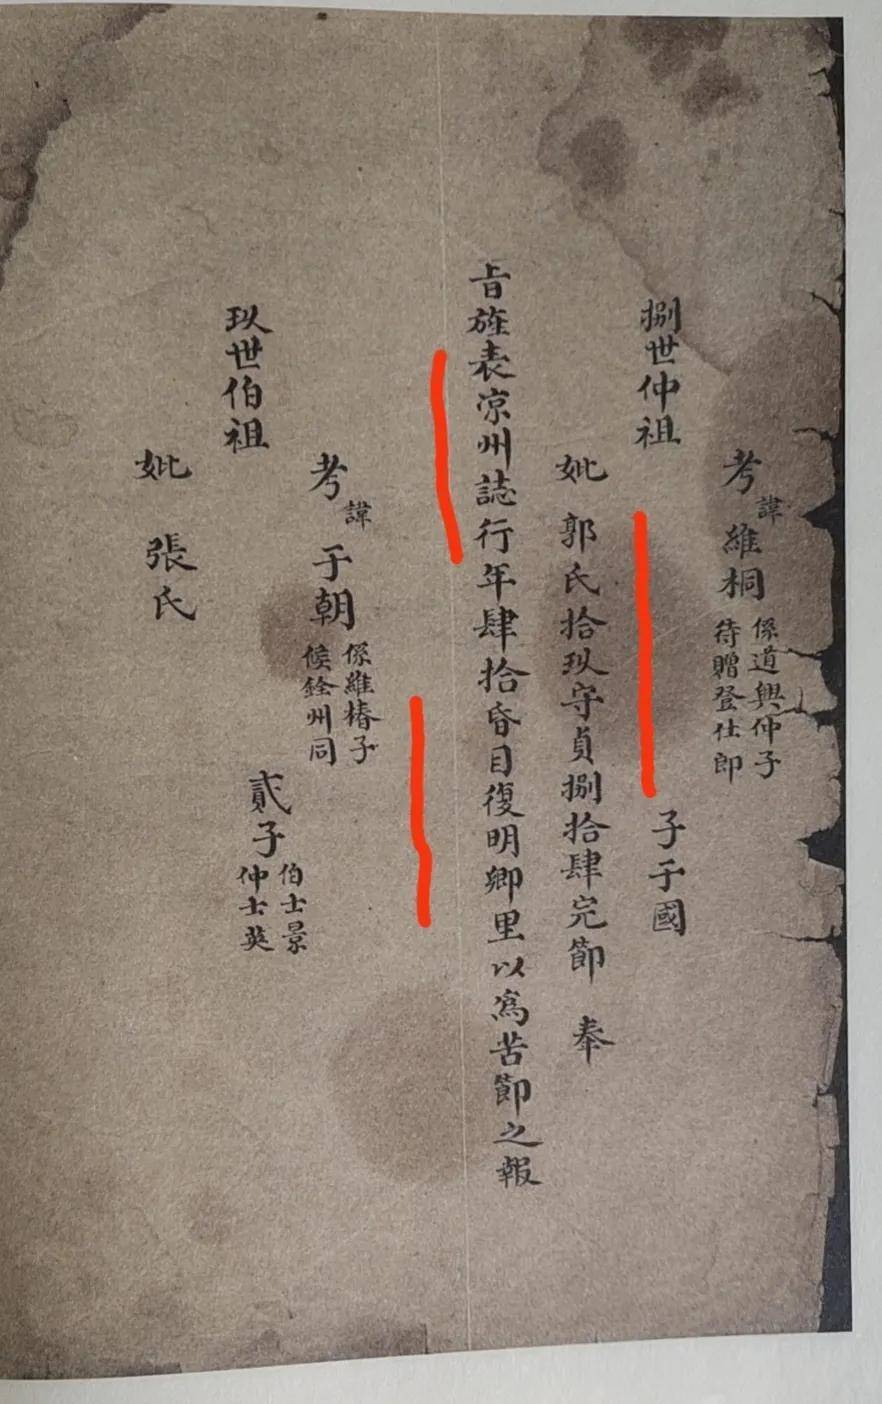 捌世仲祖
考 諱 維桐 係道興仲子
待贈登仕郎
子于國
妣 郭氏拾玖守貞捌拾肆完節 奉
旨旌表凉州誌行年肆拾昏目復明鄉里以為苦節之報
玖世伯祖
考 諱 于朝 係維椿子
候銓州同
貳子 伯士景
仲士英
妣 張氏